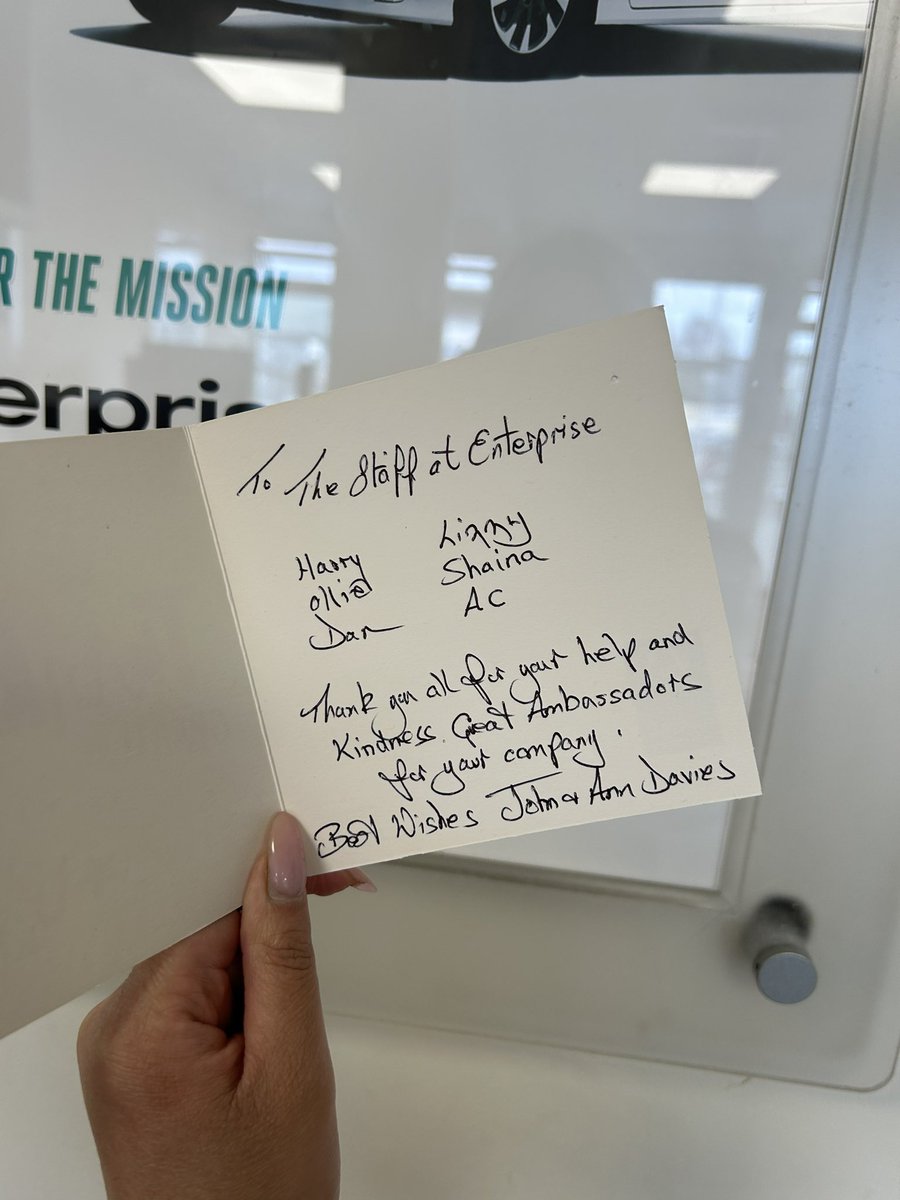 R THE MISSION
erpris
To The Staff at Enterprise
Harry Lizzy
Ollie Shaina
Dan AC
Thank you all for your help and
Kindness. Great Ambassadors
for your company.
Best Wishes John & Ann Davies